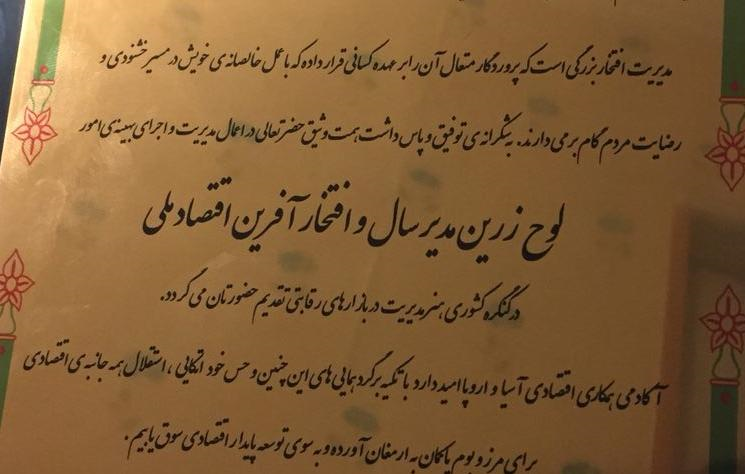 مدیریت افتخار بزرگی است که پروردگار متعال آن را بر عهده کسانی قرار داده که با عمل خالصانه ی خویش در مسیر خشنودی و
رضایت مردم گام برمی دارند. به شکرانه ی توفیق و پاس داشت همت وثیق حضرتعالی در اعمال مدیریت و اجرای بهینه ی امور
لوح زرین مدیر سال و افتخار آفرین اقتصاد ملی
در کنگره کشوری هنر مدیریت در بازارهای رقابتی تقدیم حضورتان می گردد.
آکادمی همکاری اقتصادی آسیا و اروپا امید دارد با تکیه بر گردهمایی های این چنین و حس خود اتکایی ، استقلال همه جانبه ی اقتصادی
برای مرز و بوم پاکمان به ارمغان آورده و به سوی توسعه پایدار اقتصادی سوق یابیم.